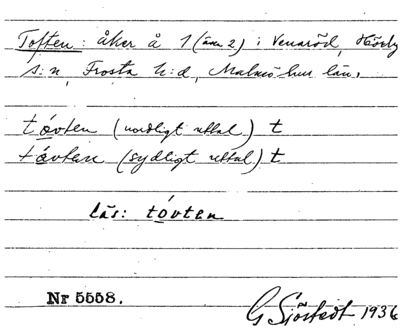 Toften: åker å 1 (äv. 2) i Venaröd, Hörby
s:n, Frosta h:d, Malmöhus län.
tóvten (nordligt uttal) t
tóvten (sydligt uttal) t
läs: tóvten
Nr 5558.
G Sjöstedt 1936